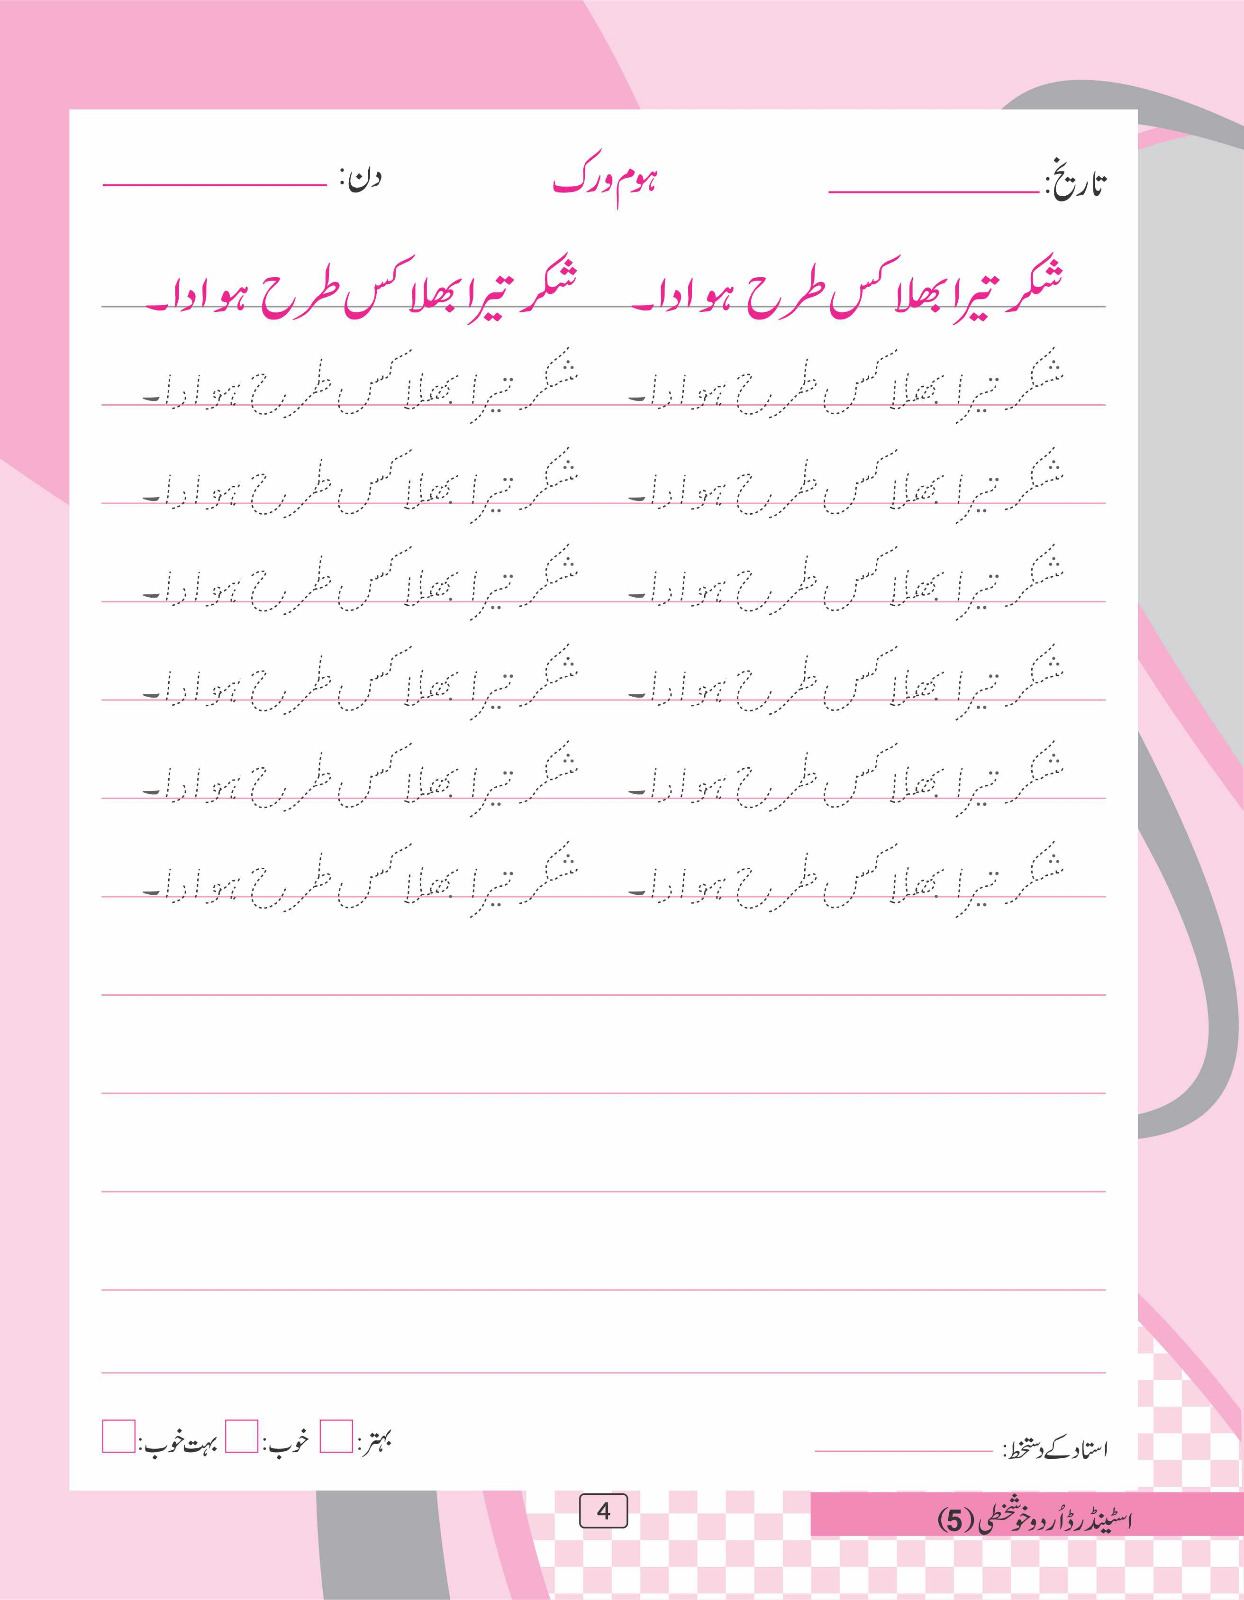 تاریخ: ہوم ورک دن:
شکر تیرا بھلا کس طرح ہو ادا۔ شکر تیرا بھلا کس طرح ہو ادا۔
شکر تیرا بھلا کس طرح ہو ادا۔ شکر تیرا بھلا کس طرح ہو ادا۔
شکر تیرا بھلا کس طرح ہو ادا۔ شکر تیرا بھلا کس طرح ہو ادا۔
شکر تیرا بھلا کس طرح ہو ادا۔ شکر تیرا بھلا کس طرح ہو ادا۔
شکر تیرا بھلا کس طرح ہو ادا۔ شکر تیرا بھلا کس طرح ہو ادا۔
شکر تیرا بھلا کس طرح ہو ادا۔ شکر تیرا بھلا کس طرح ہو ادا۔
شکر تیرا بھلا کس طرح ہو ادا۔ شکر تیرا بھلا کس طرح ہو ادا۔
استاد کے دستخط: بہتر: خوب: بہت خوب:
اسٹینڈرڈ اُردو خوشخطی (5)
4